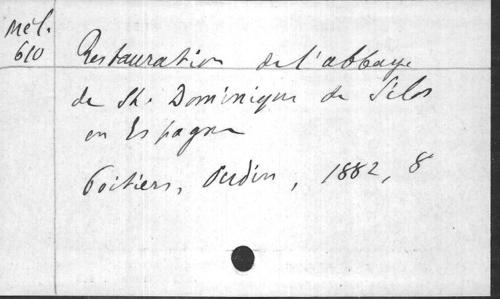 Mél.
610
Restauration de l'abbaye
de St. Dominique de Silos
en Espagne
Poitiers, Oudin, 1882, 8